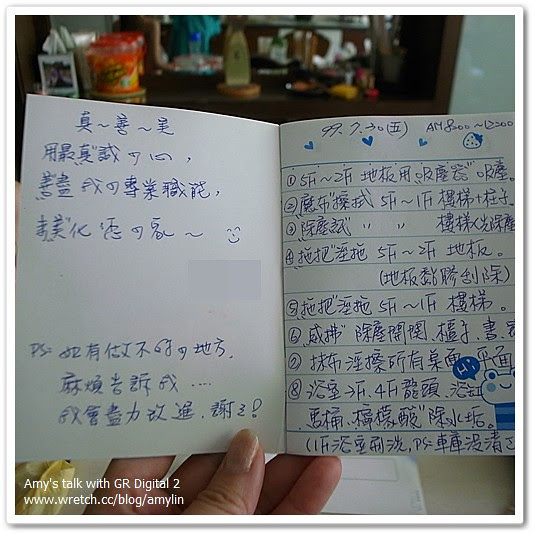 真～善～美
用最真誠の心，
善盡我の專業職能，
美化您の家～
PS: 如有做不好の地方，
麻煩告訴我....
我會盡力改進，謝謝!
99.7.30(五) AM8:00~12:00
①5F~2F 地板用"吸塵器"吸塵。
②麻布"擦拭 5F~1F 樓梯+柱子
③除塵試 〃 〃 樓梯(先除塵
④拖把"溼拖 5F~2F 地板。
(地板黏膠刮除)
⑤拖把"溼拖 5F~1F 樓梯。
⑥威拂"除塵開關、櫃子、書
⑦抹布溼擦所有桌面、平面
⑧浴室→3F.4F龍頭、浴缸
馬桶、檸檬酸"除水垢。
(1F浴室刷洗,PS:車庫沒清
Amy's talk with GR Digital 2
www.wretch.cc/blog/amylin